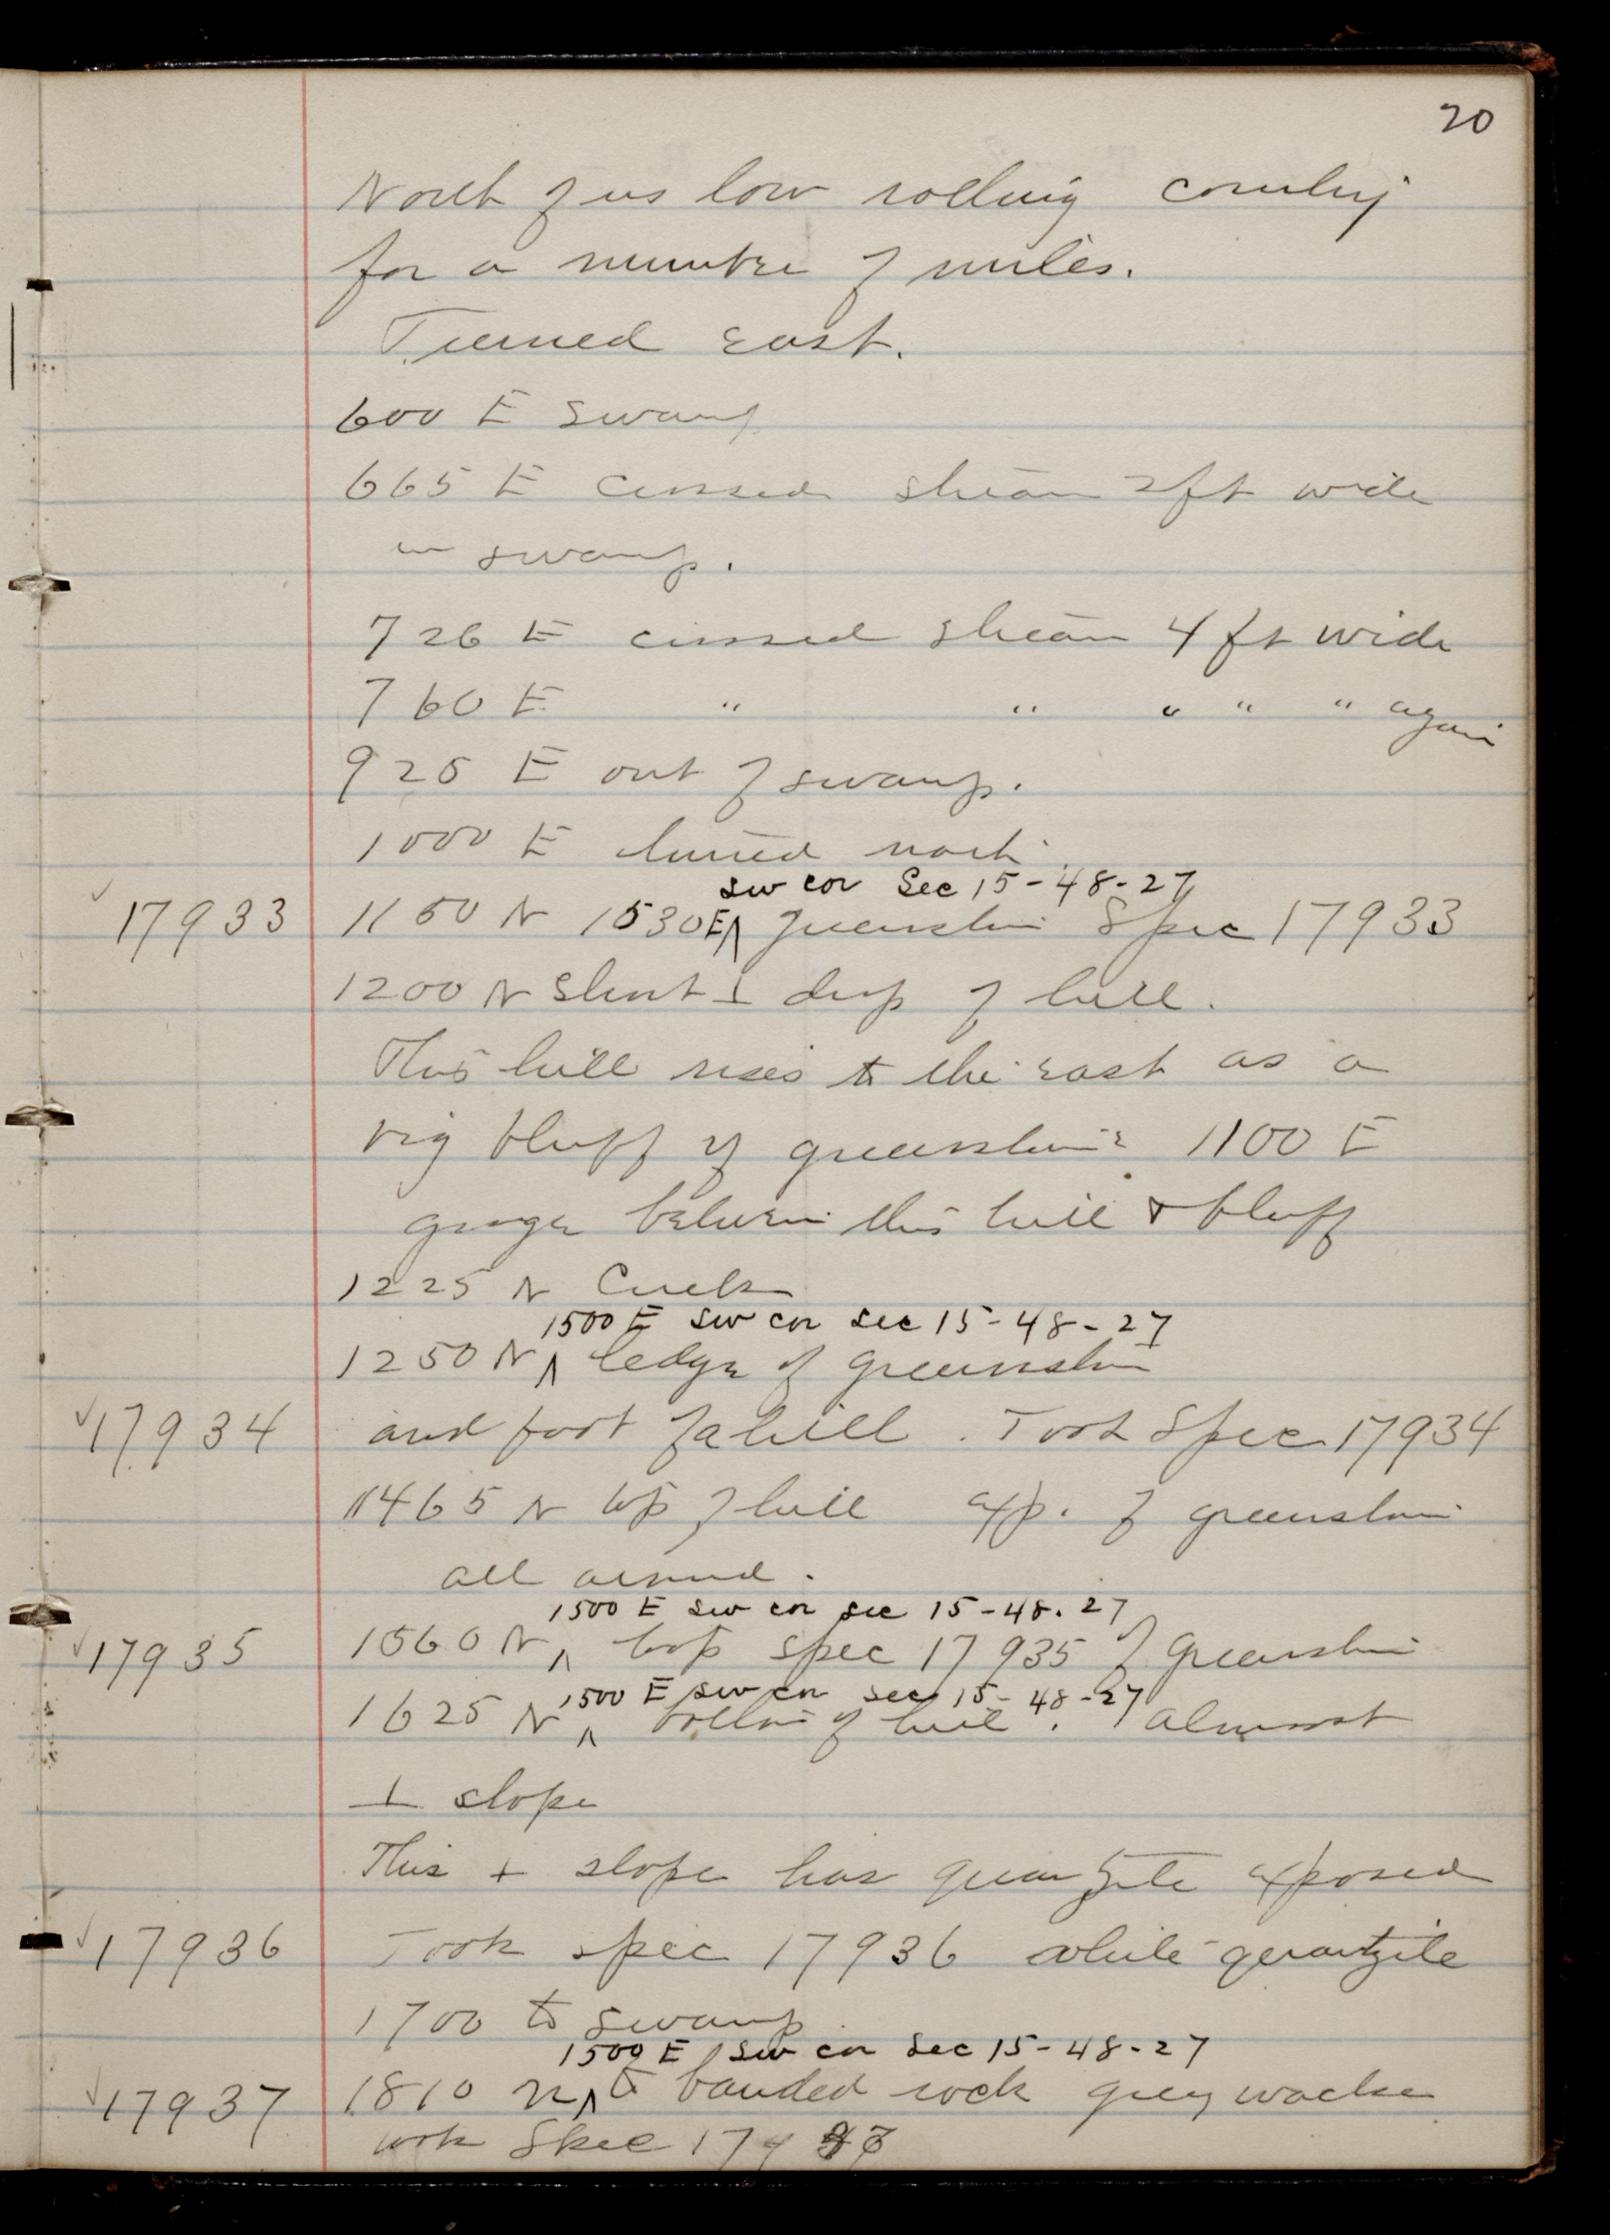 20
North of us low rolling country
for a number of miles.
Turned east.
600 E swamp
665 E crossed stream 2ft wide
in swamp.
726 E crossed stream 4 ft wide
760 E " " " " " again
925 E out of swamp.
1000 E turned north
sw cor Sec 15-48-27
17933 1150 N 1530E ∧ greenstone Spec 17933
1200 N Short ⊥ drop of hill.
This hill rises to the east as a
big bluff of greenstone 1100 E
gorge between this hill & bluff
1225 N Creek
1500 E sw cor sec 15-48-27
1250 N ∧ ledge of greenstone
17934 and foot of a hill. Took Spec 17934
1465 N top of hill exp. of greenstone
all around.
1500 E sw cor sec 15-48-27
17935 1560 N ∧ took spec 17935 of greenstone
1500 E sw cor sec 15-48-27
1625 N ∧ bottom of hill. almost
⊥ slope
This ⊥ slope has quartzite exposed
17936 Took spec 17936 white quartzite
1700 to swamp
1500 E sw cor sec 15-48-27
17937 1810 N ∧ to banded rock grey wacke
took Spec 17937